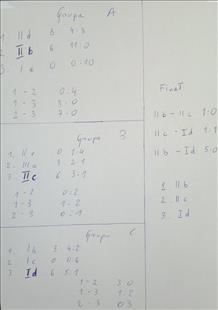 Grupa A
1. II d 3 4:3
2. II b 6 11:0
3. I a 0 0:10
1 - 2 0:4
1 - 3 3:0
2 - 3 7:0
Grupa B
1. II 0 1:4
2. III 3 2:1
3. II c 6 3:1
1 - 2 0:2
1 - 3 1:2
2 - 3 0:1
Grupa C
1. I b 3 4:2
2. I c 0 0:6
3. I d 6 5:1
1 - 2 3:0
1 - 3 1:2
2 - 3 0:3
Final
II b - II c 1:0
II c - I d 1:1
II b - I d 5:0
1. II b
2. II c
3. I d